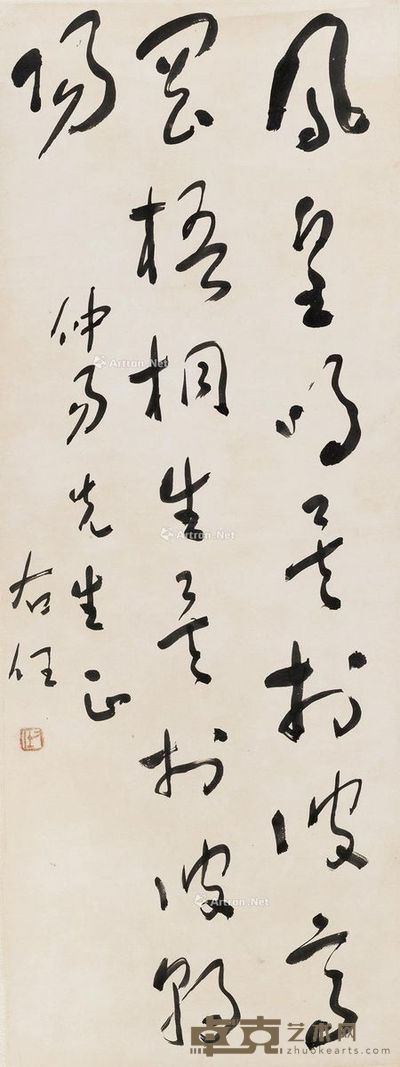 鳳皇鳴矣於彼高
岡梧桐生矣於彼朝
陽
仲易先生正
右任
Artron.Net
Artron.Net
Artron.Net
卓克艺术网
zhuokearts.com